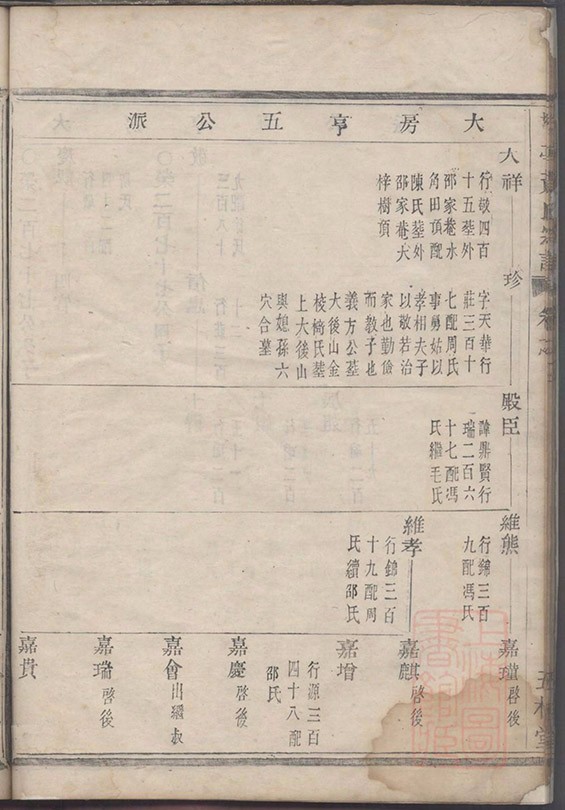 大房亨五公派
大祥
行敬四百
十五塟外
邵家巷水
角田頂配
陳氏塟外
邵家巷犬
梓樹頂
珍
字天華行
莊三百十
七配周氏
事舅姑以
孝相夫子
以敬若治
家也勤儉
而教子也
義方公塟
大後山金
枝椅氏塟
上大後山
與媳孫六
穴合墓
殿臣
諱鼎賢行
瑞二百六
十七配馮
氏繼毛氏
維熊
行錦三百
九配馮氏
維孝
行錦三百
十九配周
氏續邵氏
嘉璸啓後
嘉麒啓後
嘉增
行源三百
四十八配
邵氏
嘉慶啓後
嘉會出繼叔
嘉瑞啓後
嘉貴